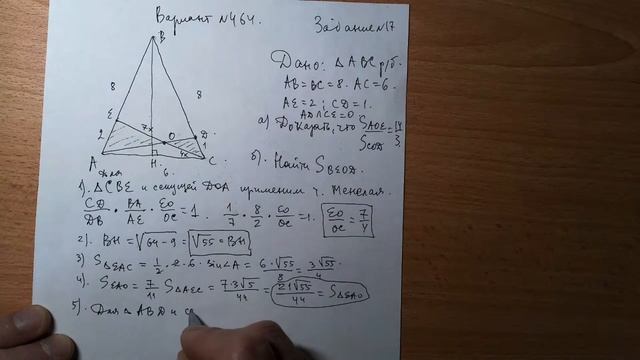 Вариант №464.
Задание №17
B
8
8
E
7x
2
O
D
1
4x
A
H
C
6
Дано: △ABC р/б.
AB=BC=8. AC=6.
AE=2; CD=1.
AD∩CE=O
а) Доказать, что S_AOE/S_COD = 14/3
б). Найти S_BEOD.
Для
1). △CBE и секущей DOA применим т. Менелая.
CD/DB · BA/AE · EO/OC = 1. 1/7 · 8/2 · EO/OC = 1. EO/OC = 7/4
2). BH = √64-9 = √55 = BH
3) S_△EAC = 1/2 · 2 · 6 · sin∠A = 6·√55/8 = 3√55/4
4). S_EAO = 7/11 S_△AEC = 7·3√5/44 = 21√55/44 = S_△EAO
5). Для △ABD и с